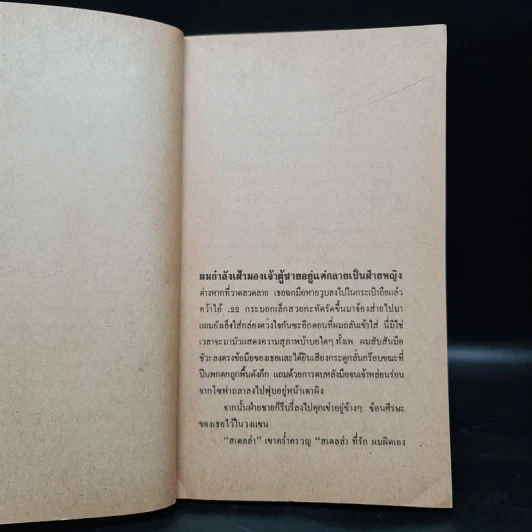 ผมกำลังเฝ้ามองเจ้าผู้ชายอยู่แต่กลายเป็นฝ่ายหญิง
ต่างหากที่วาดลวดลาย เธอฉกมือหายวูบลงไปในกระเป๋าถือแล้ว
คว้าไอ้ .22 กระบอกเล็กสวยกะทัดรัดขึ้นมาจ้องส่ายไปมา
แถมยังเล็งใส่กล่องดวงใจกันซะอีกตอนที่ผมถลันเข้าใส่ นี่มิใช่
เวลาจะมามัวแสดงความสุภาพบ้าบอใดๆ ทั้งเพ ผมสับสันมือ
ขัวะลงตรงข้อมือของเธอและได้ยินเสียงกระดูกลั่นกร๊อบขณะที่
ปืนพกตกถูกพื้นดังกึก แถมด้วยการตบหลังมือจนเจ้าหล่อนร่อน
จากโซฟาถลาลงไปฟุบอยู่หน้าเตาผิง
จากนั้นฝ่ายชายก็รีบรี่ลงไปคุกเข่าอยู่ข้างๆ ช้อนศีรษะ
ของเธอไว้ในวงแขน
“สเตลล่า” เขาคร่ำครวญ “สเตลล่า ที่รัก ผมผิดเอง